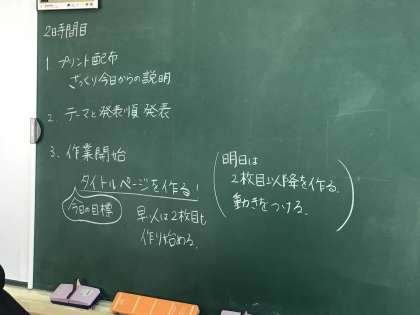 2時間目
1 プリント配布
ざっくり今日からの説明
2. テーマと発表順 発表
3. 作業開始
タイトルページを作る!
今日の目標
早い人は2枚目も
作り始める。
(明日は
2枚目以降を作る。
動きをつける。)